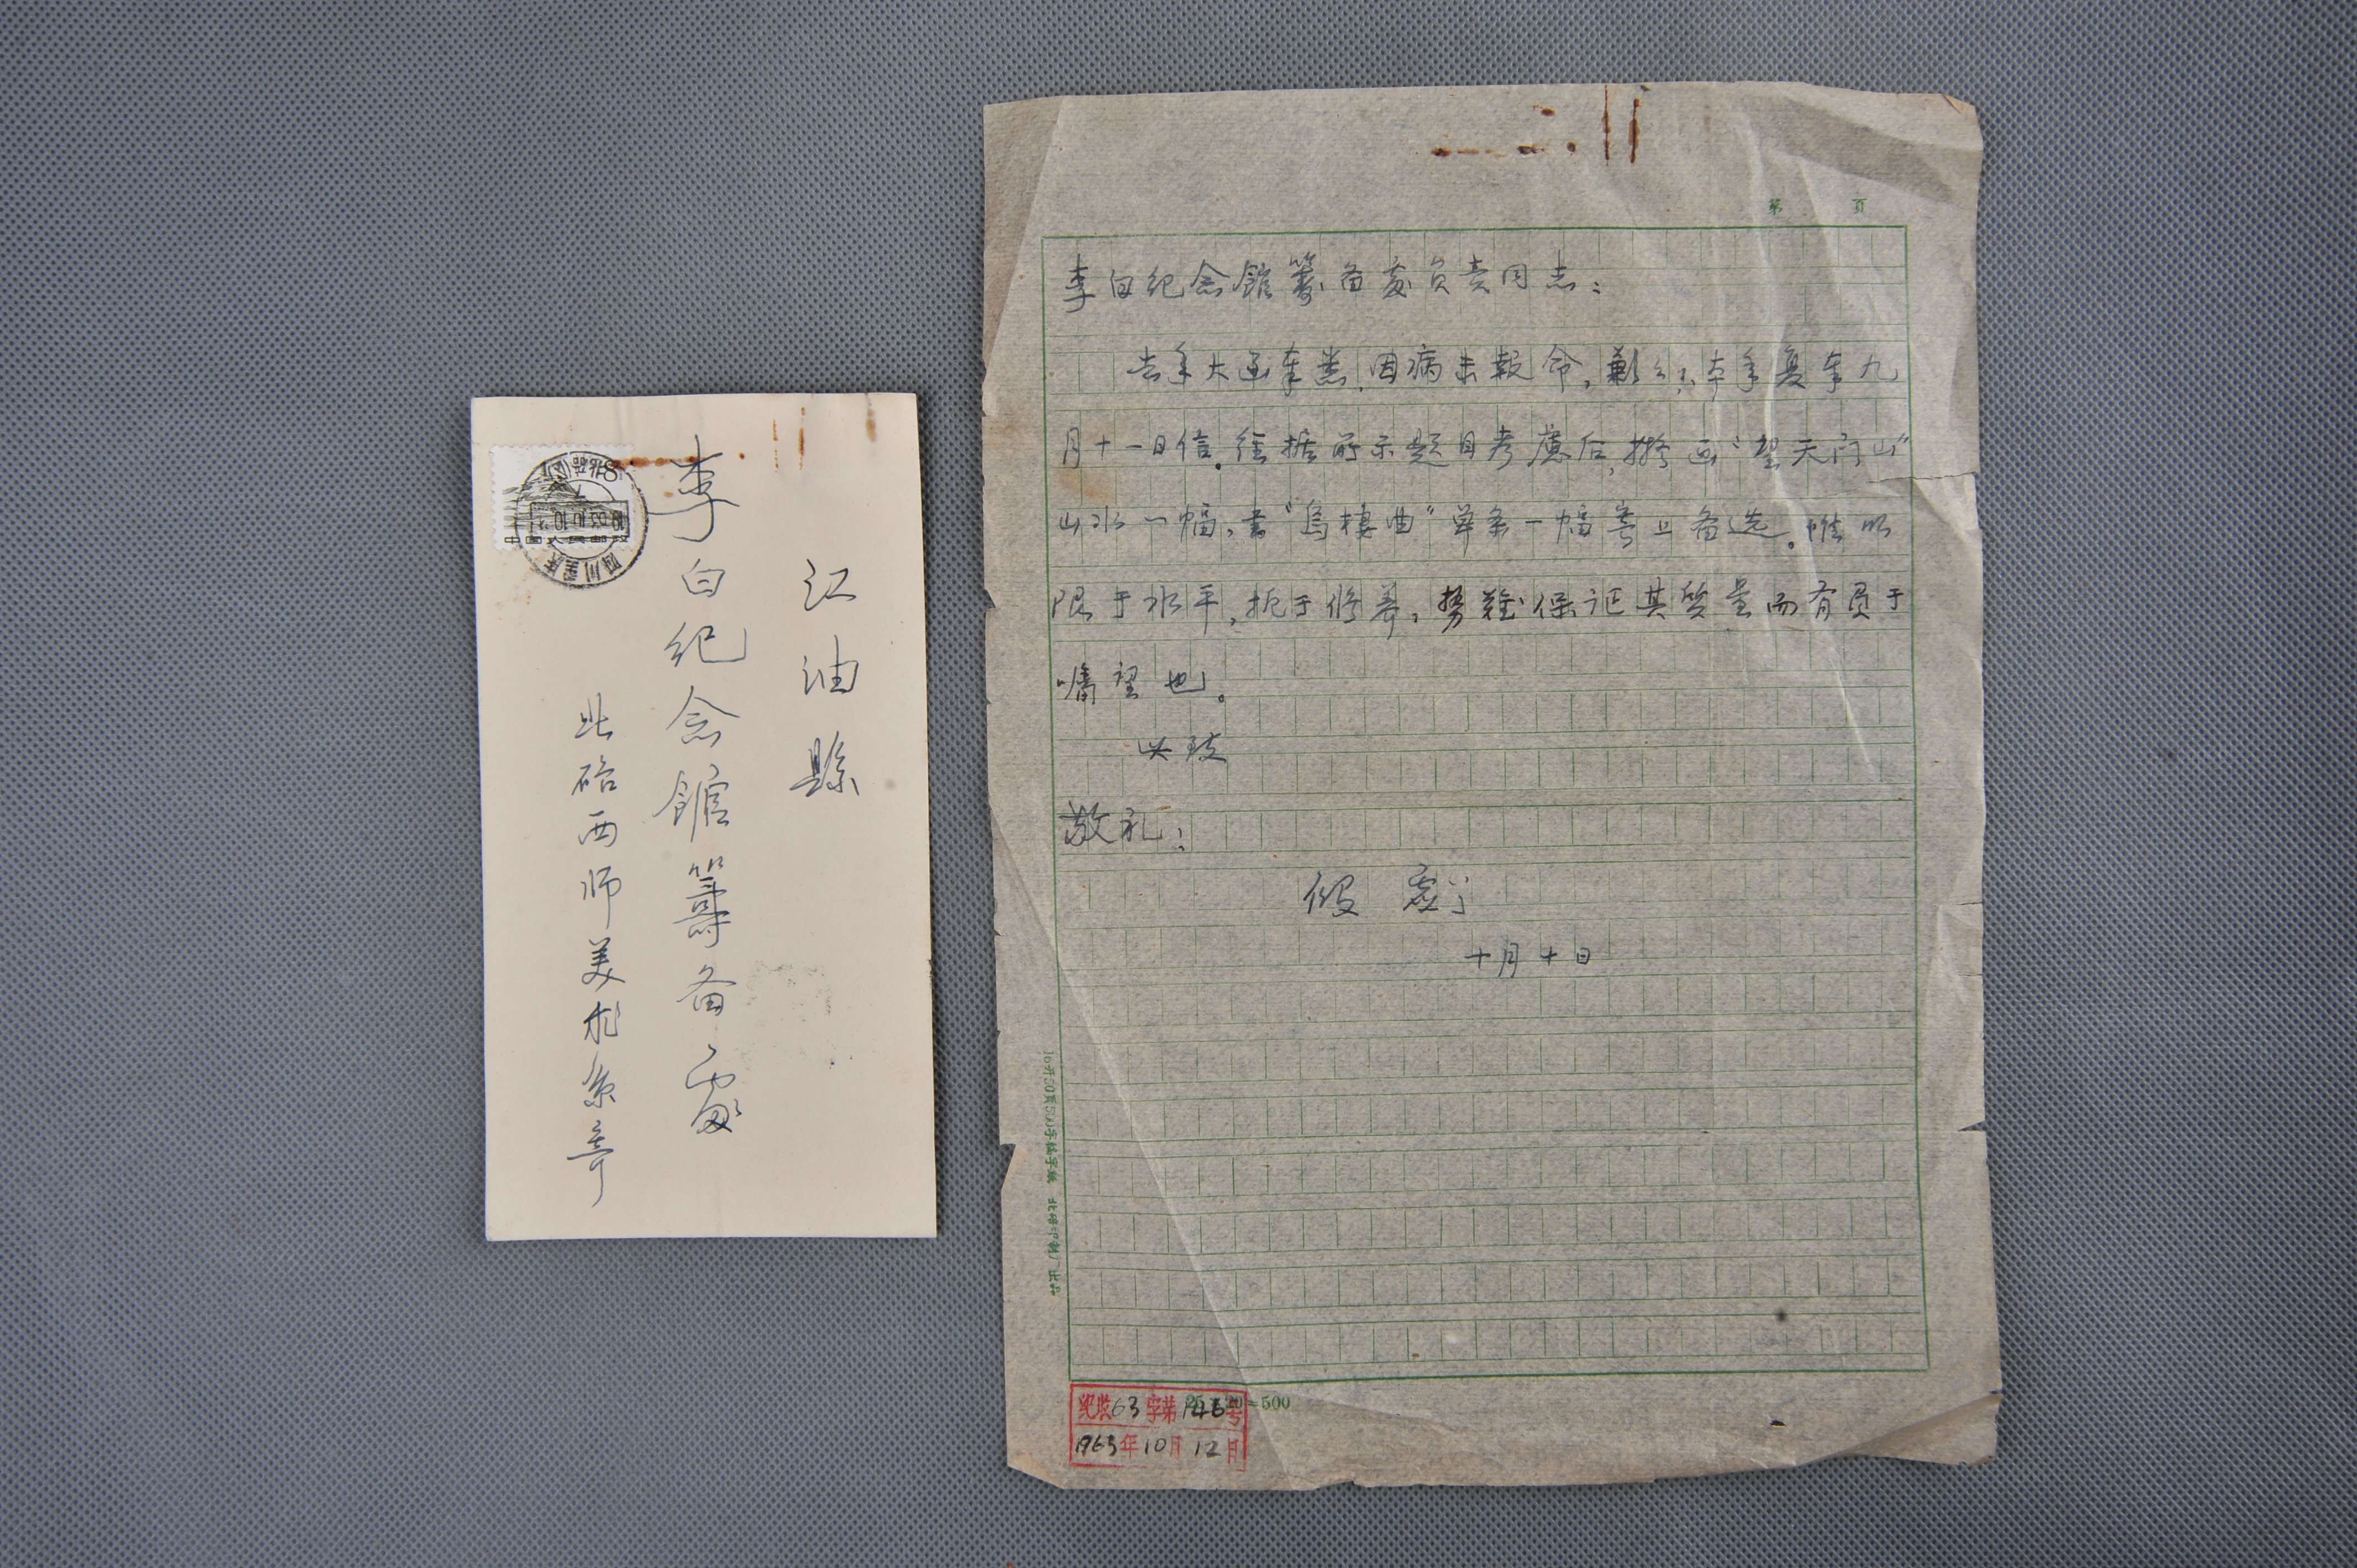 江油縣
李白紀念館籌备處
北碚西师美术系寄
中国人民邮政
四川重庆
第 頁
李白纪念館籌备處负责同志：
去年大函奉悉，因病未報命，歉歉！本年复奉九
月十一日信。经据所示题目考慮后，擬画“望天门山”
山水一幅，書“烏棲曲”單条一幅寄上备选。惟以
限于水平，扼于修养，势難保证其质量而有负于
嘱望也。
此致
敬礼！
十月十日
25×20=500
紀收63字第146号
1963年10月12日